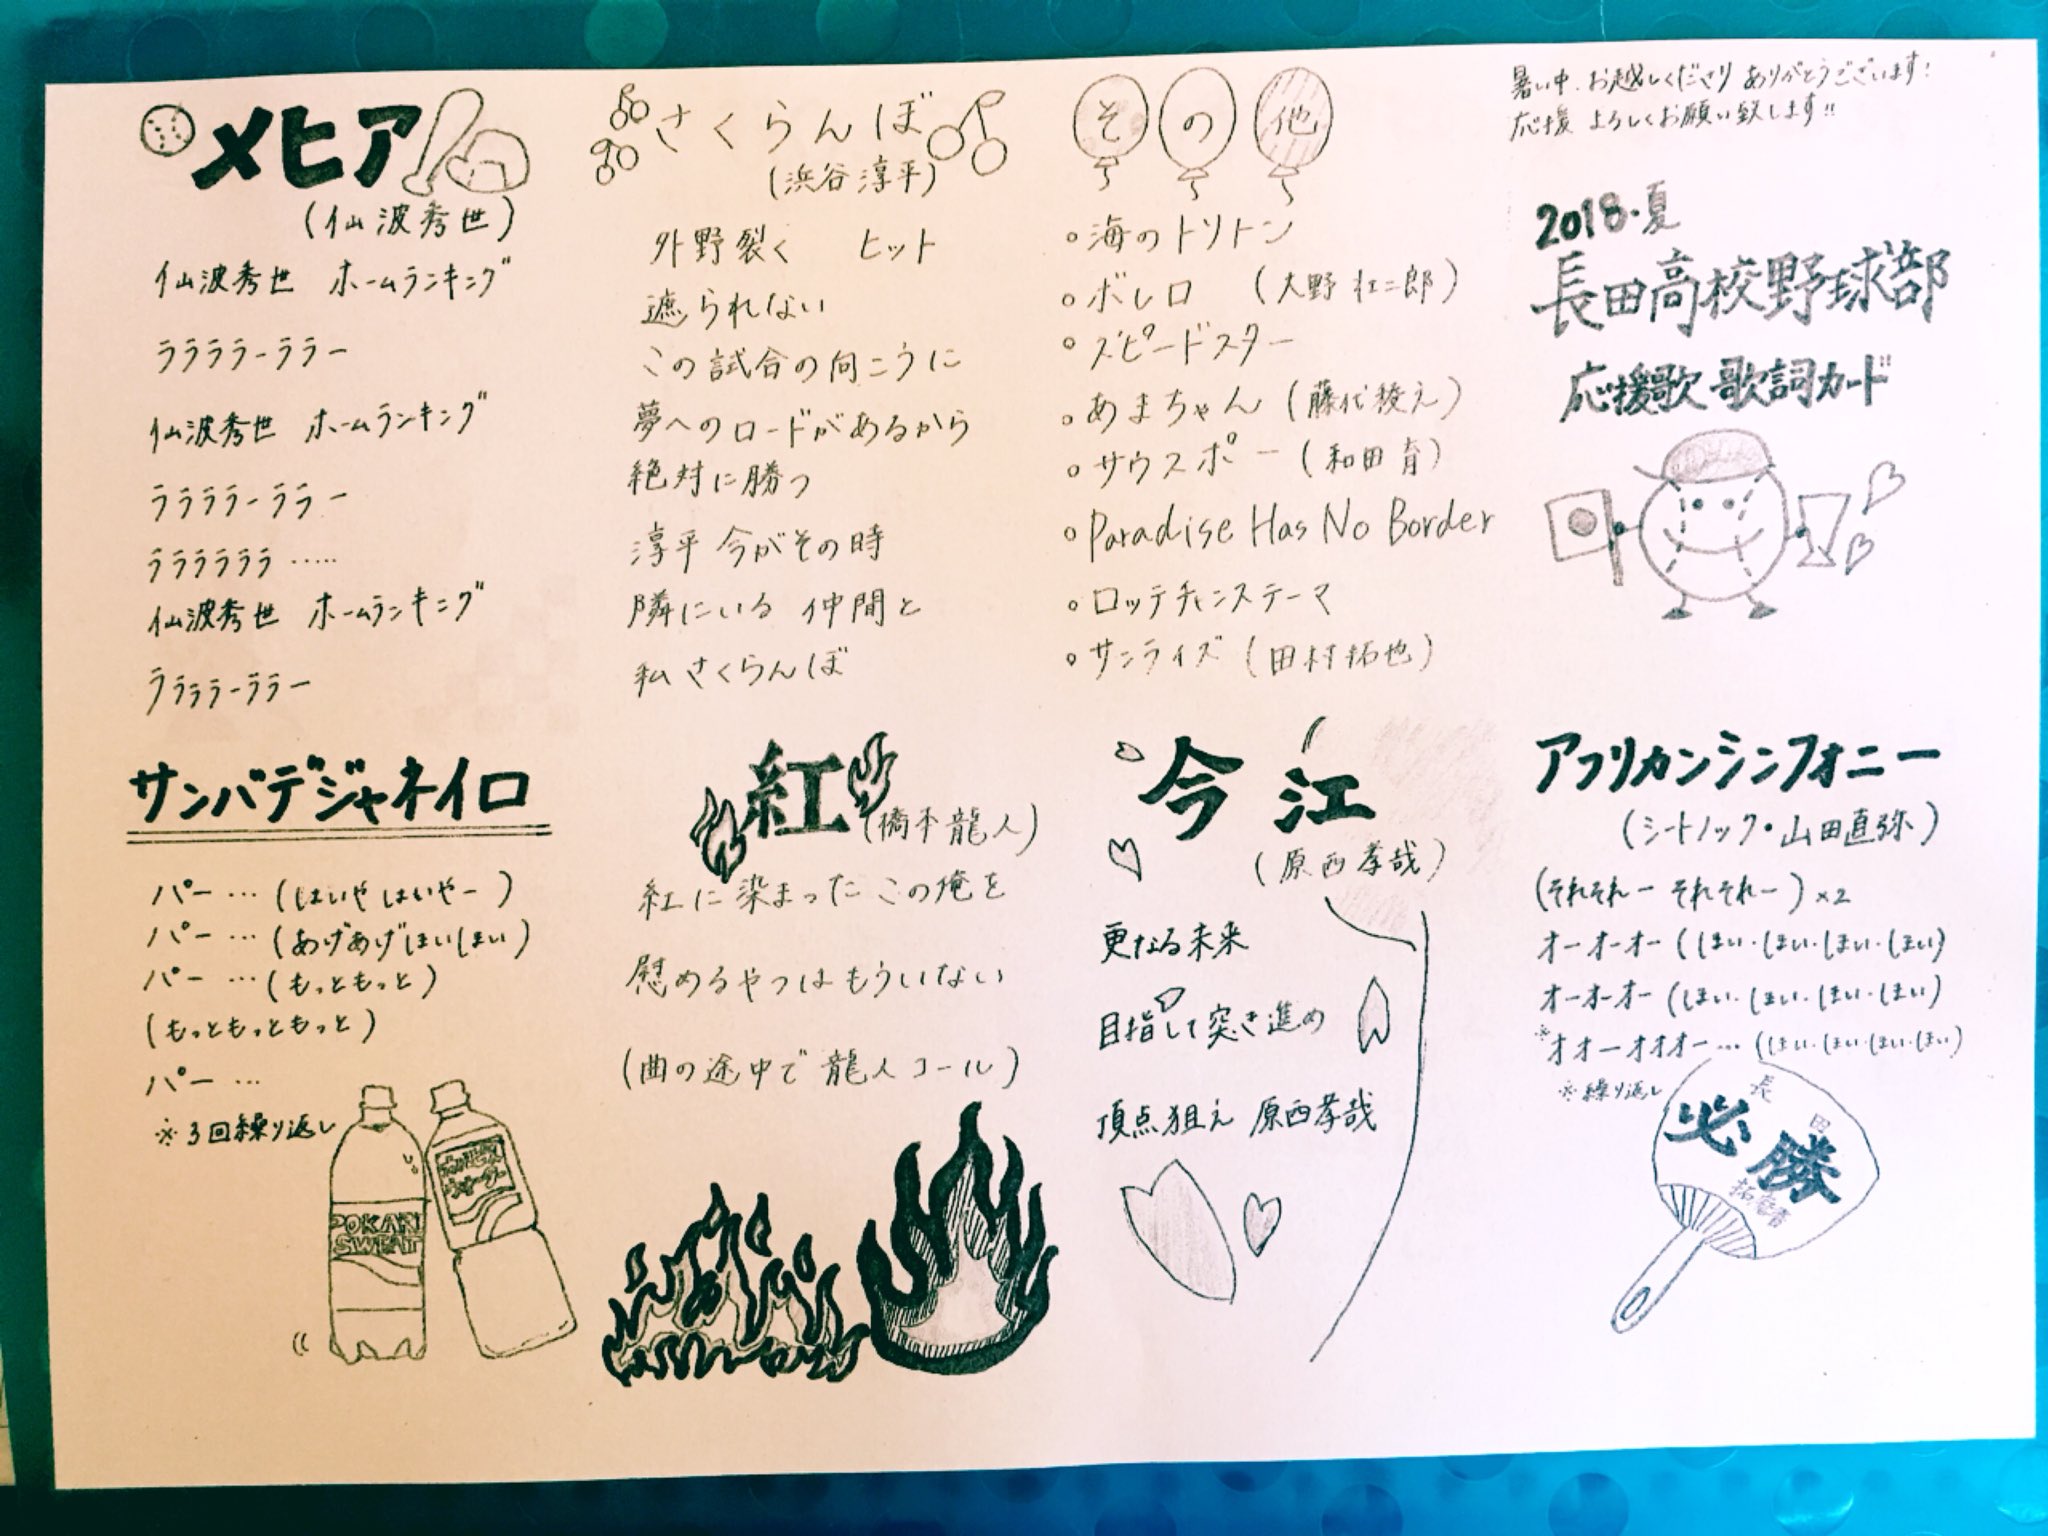 メヒア
(仙波秀世)
仙波秀世 ホームランキング
ララララーララー
仙波秀世 ホームランキング
ララララーララー
ララララララ……
仙波秀世 ホームランキング
ララララーララー
さくらんぼ
(浜谷淳平)
外野裂く ヒット
遮られない
この試合の向こうに
夢へのロードがあるから
絶対に勝つ
淳平 今がその時
隣にいる 仲間と
私さくらんぼ
その他
○海のトリトン
○ボレロ (大野壮二郎)
○スピードスター
○あまちゃん (藤代稜え)
○サウスポー (和田育)
○Paradise Has No Border
○ロッテチャンステーマ
○サンライズ (田村拓也)
暑い中、お越しくださり ありがとうございます!
応援 よろしくお願い致します!!
2018・夏
長田高校野球部
応援歌 歌詞カード
サンバデジャネイロ
パー … (はいや はいやー)
パー … (あげあげほいほい)
パー … (もっともっと)
(もっともっともっと)
パー …
※3回繰り返し
POKARI
SWEAT
紅
(橋本龍人)
紅に染まった この俺を
慰めるやつは もういない
(曲の途中で 龍人コール)
今江
(原西孝哉)
更なる未来
目指して突き進め
頂点狙え 原西孝哉
アフリカンシンフォニー
(シートノック・山田直弥)
(それそれー それそれー)×2
オーオーオー (ほい・ほい・ほい・ほい)
オーオーオー (ほい・ほい・ほい・ほい)
※オオーオオオー… (ほい・ほい・ほい・ほい)
※繰り返し
長田
必勝